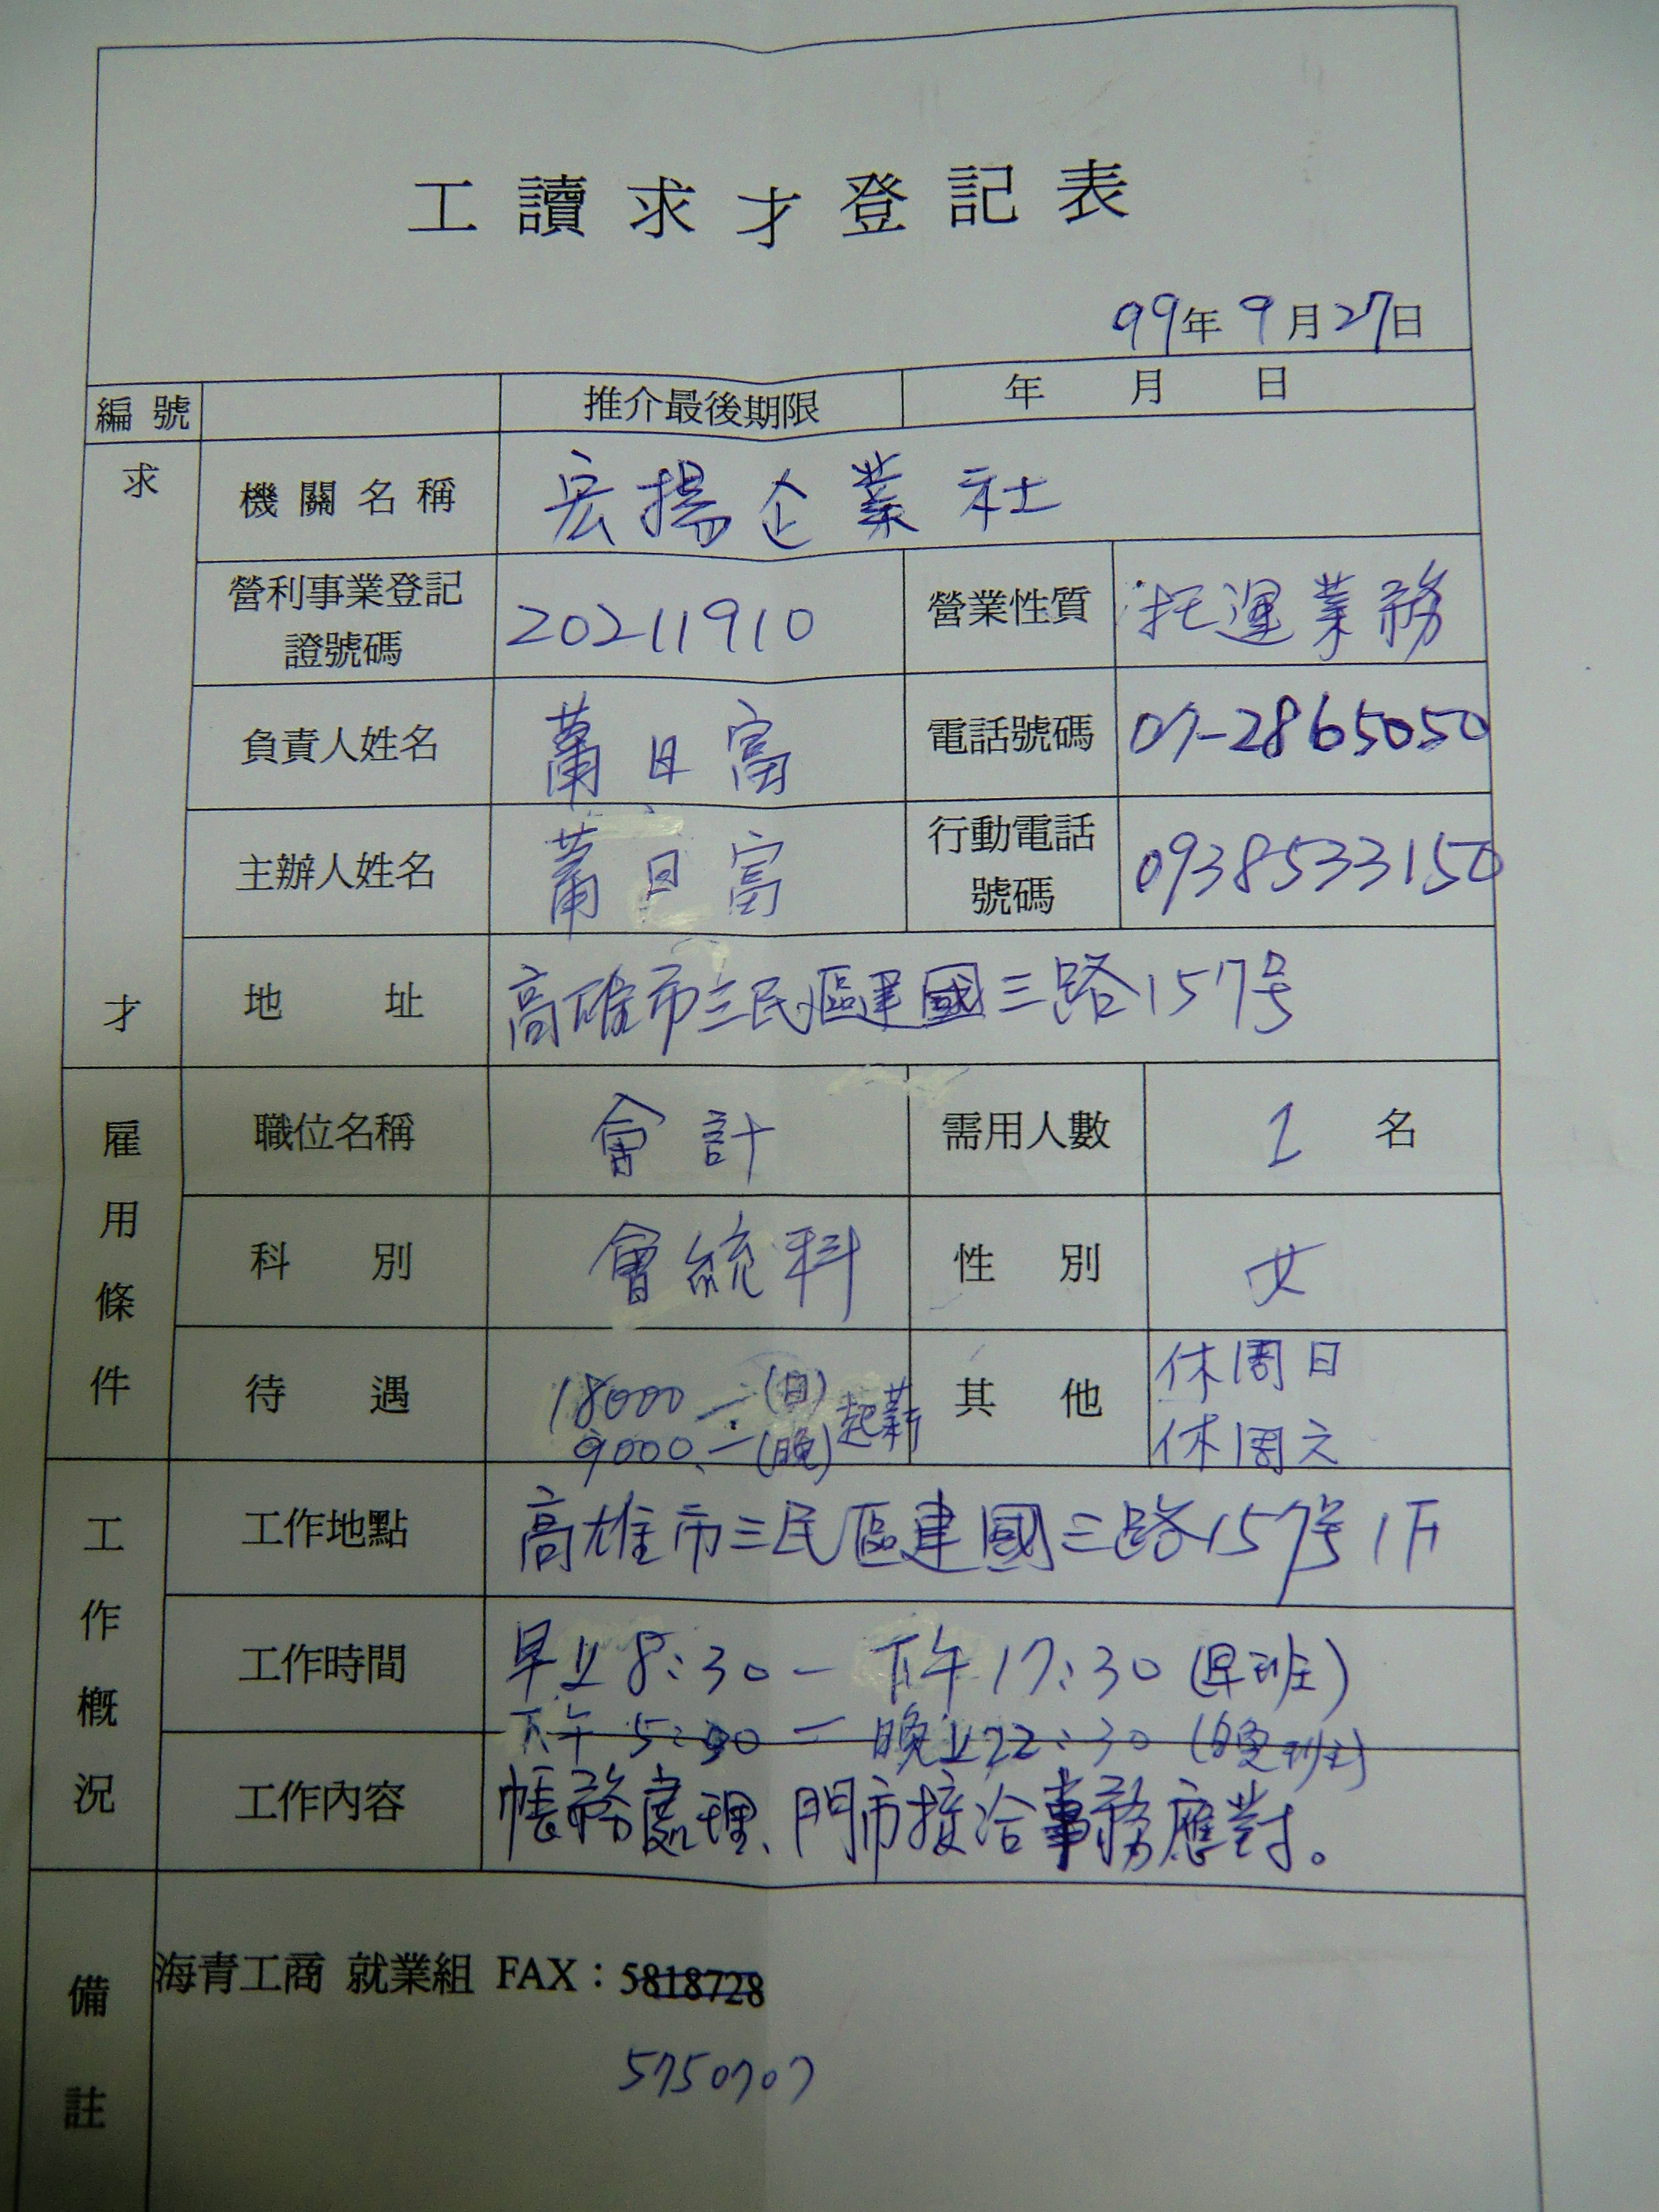 工讀求才登記表
99年9月27日
編號 推介最後期限 年 月 日
求才
機關名稱 宏揚企業社
營利事業登記證號碼 20211910 營業性質 托運業務
負責人姓名 蕭日富 電話號碼 07-2865050
主辦人姓名 蕭日富 行動電話號碼 0938533150
地址 高雄市三民區建國三路157号
雇用條件
職位名稱 會計 需用人數 1名
科別 會統科 性別 女
待遇 18000.-(日) 起薪 其他 休周日
9000.-(晚) 休周六
工作概況
工作地點 高雄市三民區建國三路157号1F
工作時間 早上8:30-下午17:30(早班)
下午5:30-晚上22:30(晚班)
工作內容 帳務處理、門市接洽事務應對。
備註
海青工商 就業組 FAX：5818728
5750707